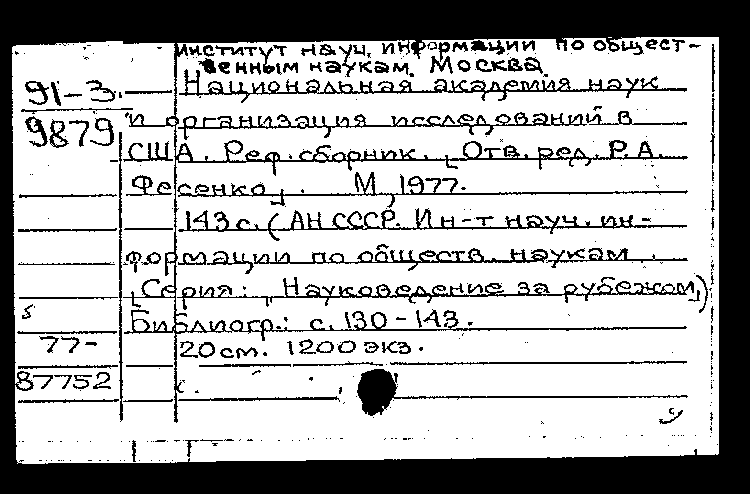 институт науч. информации по общест-
венным наукам. Москва.
91-3. Национальная академия наук
9879 и организация исследований в
США. Реф. сборник. [Отв. ред. Р.А.
Фесенко]. М, 1977.
143 с. (АН СССР. Ин-т науч. ин-
формации по обществ. наукам.
[Серия: „Науковедение за рубежом])
s Библиогр.: с. 130-143.
77- 20 см. 1200 экз.
87752 с.